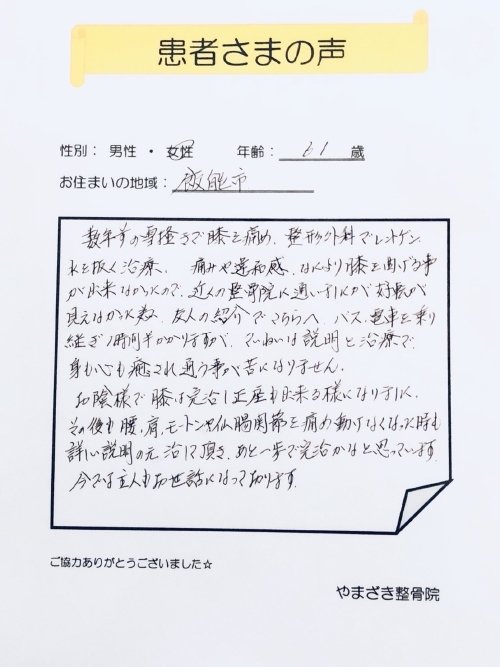 患者さまの声
性別： 男性 ・ 女性 年齢： 61 歳
お住まいの地域： 飯能市
数年前の雪掻きで膝を痛め、整形外科でレントゲン、
水を抜く治療、痛みや違和感、なにより膝を曲げる事
が出来なかったので、近くの整骨院に通いましたが好転が
見えなかった数、友人の紹介でこちらへ バス、電車を乗り
継ぎ1時間半かかりますが、ていねいな説明と治療で
身も心も癒され通う事が苦になりません。
お陰様で膝は完治し正座も出来る様になりました。
その後も腰、肩、モートン、仙腸関節を痛め動けなくなった時も
詳しい説明の元 治して頂き、あと一歩で完治かなと思っています
今では主人もお世話になっております。
ご協力ありがとうございました☆
やまざき整骨院